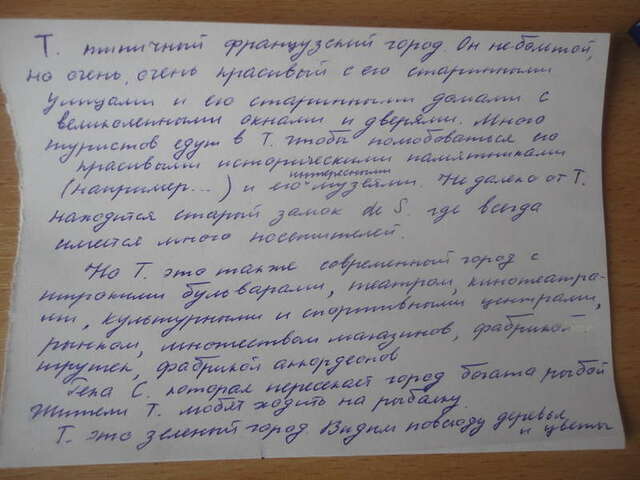 Т. типичный французский город. Он небольшой,
но очень, очень красивый с его старинными
улицами и его старинными домами с
великолепными окнами и дверями. Много
туристов едут в Т. чтобы полюбоваться его
красивыми историческими памятниками
(например...) и его интересными музеями. Недалеко от Т.
находится старый замок de S. где всегда
имеется много посетителей.
Но Т. это также современный город с
широкими бульварами, театром, кинотеатра-
ми, культурными и спортивными центрами,
рынком, множеством магазинов, фабрикой
игрушек, фабрикой аккордеонов
Река С. которая пересекает город богата рыбой
Жители Т. любят ходить на рыбалку.
Т. это зеленый город Видим повсюду деревья
и цветы